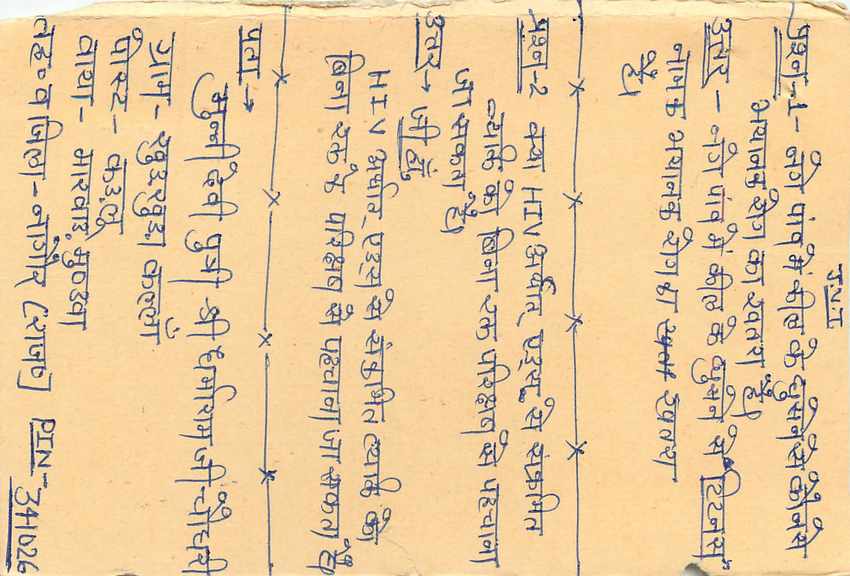 उ.प.1
प्रश्न-1- नंगे पांव में कील के चुभने से कौनसे
भयानक रोग का खतरा है।
उत्तर - नंगे पांव में कील के चुभने से "टिटनस"
नामक भयानक रोग का खतरा
है।
प्रश्न-2 क्या HIV अर्थात् एड्स से संक्रमित
व्यक्ति को बिना रक्त परिक्षण से पहचाना
जा सकता है।
उत्तर → जी हाँ
HIV अर्थात् एड्स से संक्रमित व्यक्ति को
बिना रक्त के परिक्षण से पहचाना जा सकता है।
पता →
मुन्नी देवी पुत्री श्री धर्माराम जी चौधरी
ग्राम - खुडखुडा कल्लां
पोस्ट - कउलु
वाया - मारवाड़ मुण्डवा
तह॰ व जिला - नागौर (राज॰) PIN- 341026